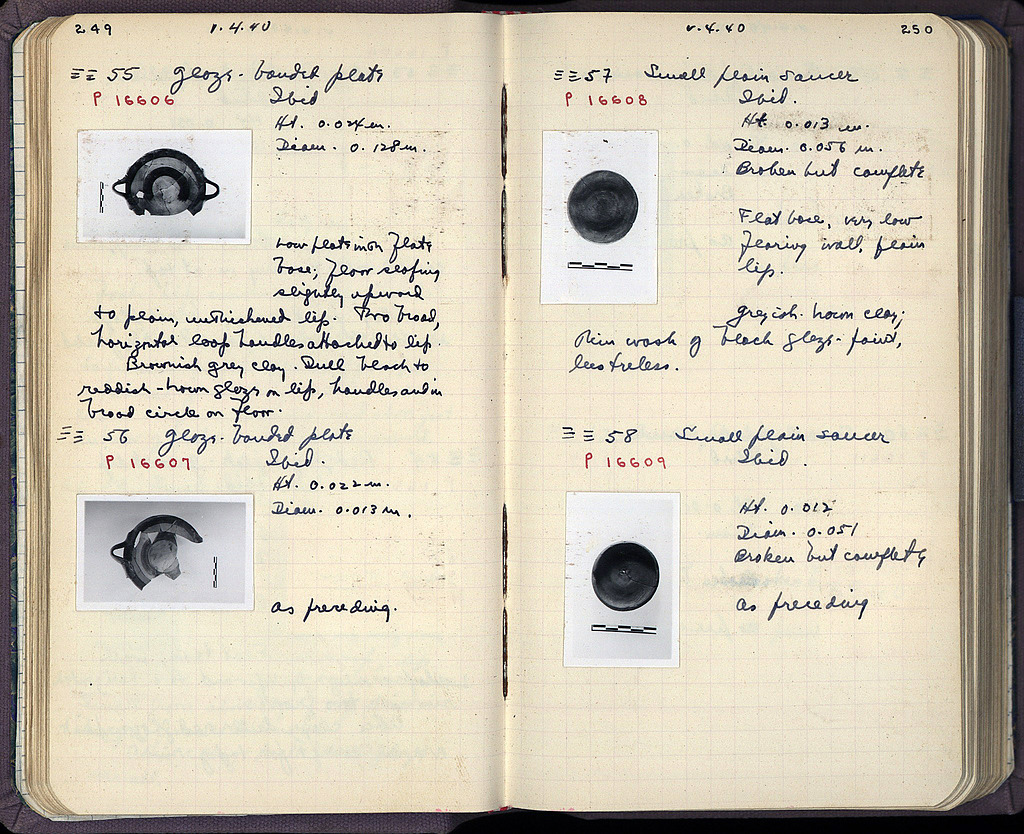 249
v.4.40
ΞΞ 55 Glaze-banded plate
P 16606
Ibid
Ht. 0.024 m.
Diam. 0.128 m.
Low plate with flat
base; floor sloping
slightly upward
to plain, unthickened lip. Two broad,
horizontal loop handles attached to lip.
Brownish grey clay. Dull black to
reddish-brown glaze on lip, handles and in
broad circle on floor.
ΞΞ 56 Glaze-banded plate
P 16607
Ibid.
Ht. 0.022 m.
Diam. 0.013 m.
As preceding.
v.4.40
250
ΞΞ 57 Small plain saucer
P 16608
Ibid.
Ht. 0.013 m.
Diam. 0.056 m.
Broken but complete
Flat base, very low
flaring wall, plain
lip.
Greyish-brown clay;
thin wash of black glaze-paint,
lustreless.
ΞΞ 58 Small plain saucer
P 16609
Ibid.
Ht. 0.012
Diam. 0.051
Broken but complete
As preceding